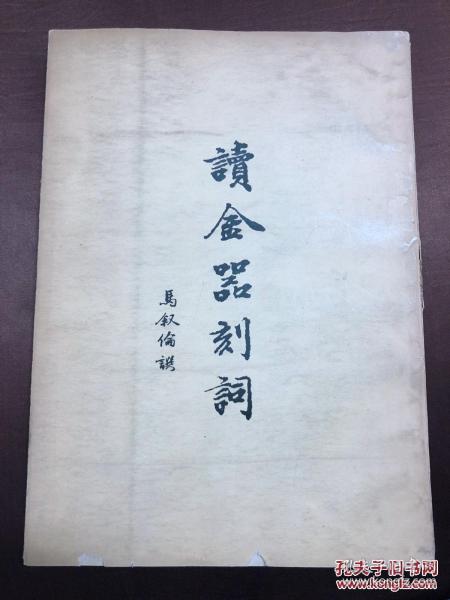 讀金器刻詞
馬叙倫譔
孔夫子旧书网